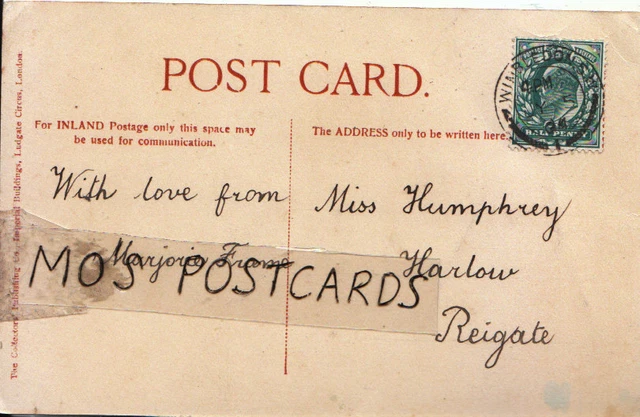 POST CARD.
For INLAND Postage only this space may
be used for communication.
The ADDRESS only to be written here.
With love from
Marjorie Frame
Miss Humphrey
Harlow
Reigate
MOS POSTCARDS
HALFPENNY
WIMBLEDON
The Collectors' Publishing Co. Imperial Buildings, Ludgate Circus, London.